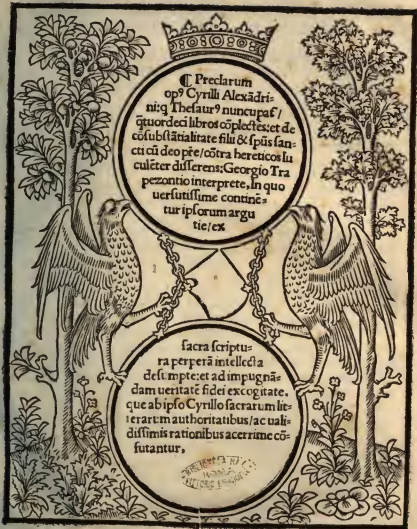 ¶ Preclarum
opꝰ Cyrilli Alexãdri-
ni:q Thesaurꝰ nuncupat᷑/
q̃tuordeci libros cõplectẽs:et de
cõsubstãtialitate filii & spũs san-
cti cũ deo pr̃e/cõtra hereticos lu
culẽter disserens:Georgio Tra
pezontio interprete, In quo
uersutissime continẽ-
tur ipsorum argu
tie/ex
sacra scriptu-
ra perperã intellecta
desumpte:et ad impugnã-
dam ueritatẽ fidei excogitate.
que ab ipso Cyrillo sacrarum lit-
terarum authoritatibus/ac uali-
dissimis rationibus acerrime cõ-
futantur.